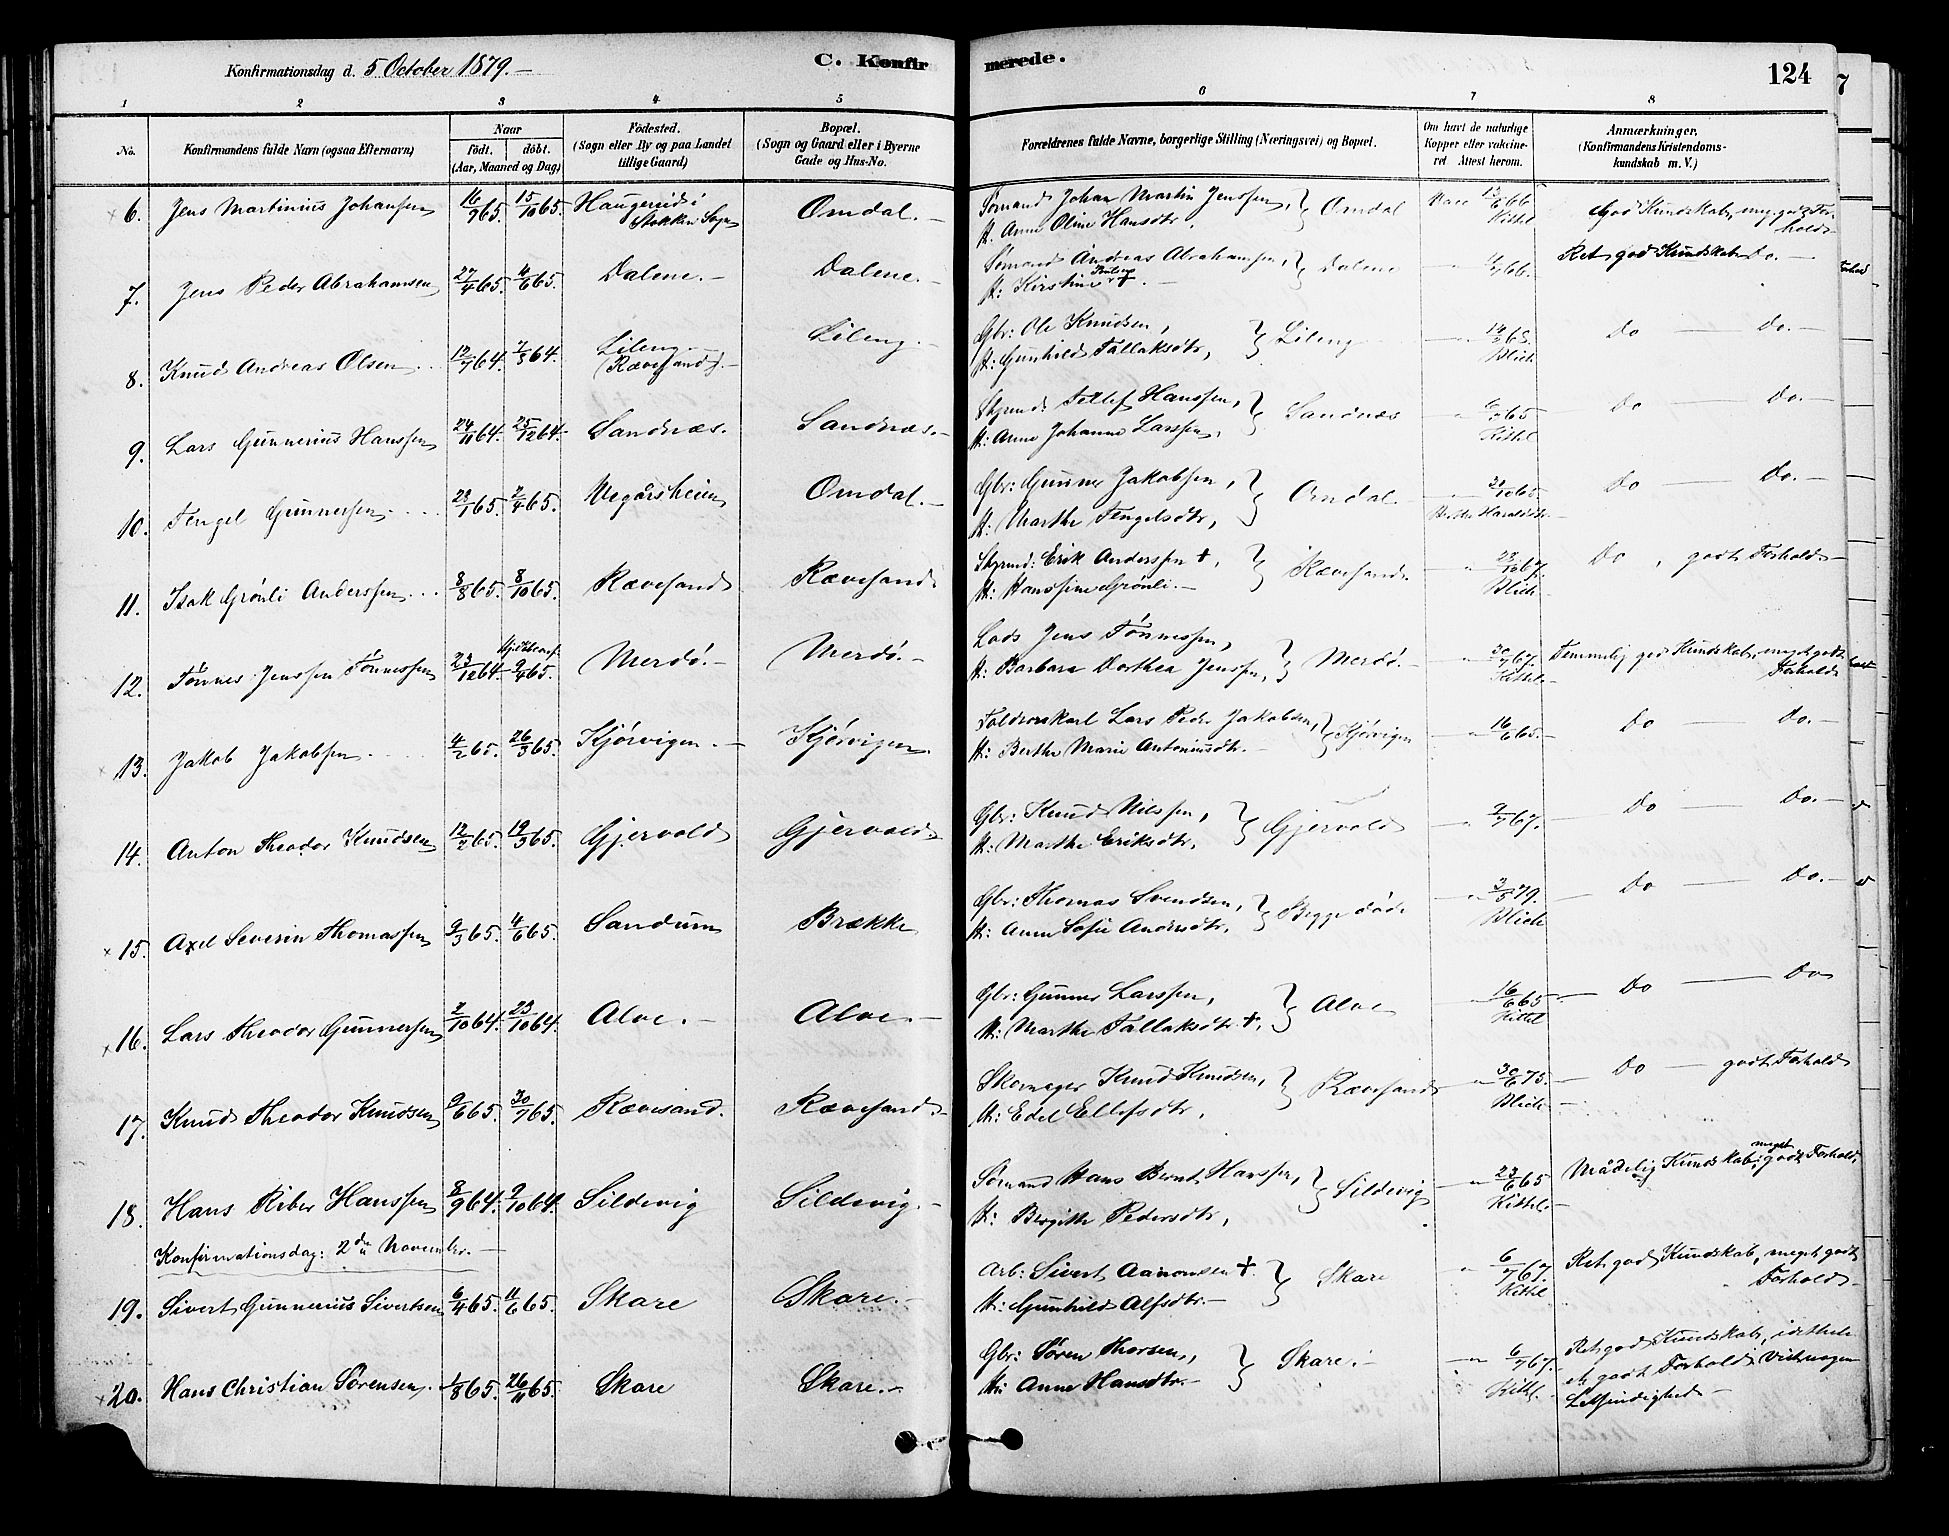 Konfirmationsdag d. 5 October 1879. –
C. Konfirmerede.
124
1 2 3 4 5 6 7 8
No.
Konfirmandens fulde Navn (ogsaa Efternavn)
Naar
födt. döbt.
(Aar, Maaned og Dag)
Födested.
(Sogn eller By og paa Landet
tillige Gaard)
Bopæl.
(Sogn og Gaard eller i Byerne
Gade og Hus-No.
Forældrenes fulde Navne, borgerlige Stilling (Næringsvei) og Bopæl.
Om havt de naturlige
Kopper eller vakcine-
ret Attest herom.
Anmærkninger.
(Konfirmandens Kristendoms-
kundskab m. V.)
6. Jens Martinius Johansen 16/9 65. 15/10 65. Haugereid i Stokken Sogn Omdal. – Sømand Johan Martin Jenssen, H. Anne Oline Hansdtr. } Omdal 66 Kittel God Kundskab, meg. godt Forhold
7. Jens Peder Abrahamsen 27/4 65. 4/6 65. Dalene. – Dalene. – Sømand Andreas Abrahamsen, H: Kirstine † } Dalene 66. Ret god Kundskab Do. –
8. Knud Andreas Olsen 12/7 64. 64. Lileng (Rævesand). – Lileng. – Gbr: Ole Knudsen, H: Gunhild Tallaksdtr, } Lileng 65. Blich Do — Do. –
9. Lars Gunnerius Hanssen 24/11 64. 25/12 64. Sandnæs. Sandnæs. – Tellef Hanssen, H: Anne Johanne Larssen, } Sandnæs 65 Kittel Do — Do. –
10. Tengel Gunnersen 23/1 65. 2/4 65. Vegårsheien Omdal. – Gbr: Gunner Jakobsen, H: Marthe Tengelsdtr, } Omdal 20/10 65 Do — Do. –
11. Isak Grönli Anderssen 3/8 65. 8/10 65. Rævesand Rævesand Erik Anderssen †, H: Hanssine Grönli. – } Rævesand 23/10 67. Blich Do, godt Forhold –
12. Tönnes Jenssen Tönnessen 23/12 64 – 2/4 65. Merdö. – Merdö. – Lods Jens Tönnessen, H: Barbara Dorthea Jenssen, } Merdö. 30/7 67. Kittel. – Temmelig god Kundskab, meget godt Forhold
13. Jakob Jakobsen 4/2 65. 26/3 65. Kjörvigen. – Kjörvigen. Lars Peder Jakobsen, H: Berthe Marie Antoniusdtr. – } Kjörvigen 16/6 65. – Do — Do. –
14. Anton Theodor Knudsen 12/2 65. 19/3 65. Gjervold Gjervold Gbr: Knud Nilssen, H: Marthe Eriksdtr. } Gjervold 2/7 67. Do — Do. –
15. Axel Severin Thomassen 9/3 65. 4/6 65. Sandum Brække Gbr: Thomas Svendsen, H: Anne Sofie Andersdtr. } Begge döde 79. Blich Do — Do. –
16. Lars Theodor Gunnersen 2/10 64. 23/10 64. Alve. – Alve. – Gbr: Gunner Larssen, H: Marthe Tallaksdtr †, } Alve 16/6 65. Kittel Do — Do
17. Knud Theodor Knudsen 9/6 65. 30/7 65. Rævesand. Rævesand. Skomager Knud Knudsen, H: Edel Ellefsdtr, } Rævesand 30/6 75. Blich Do — godt Forhold
18. Hans Riber Hanssen 8/9 64. 9/10 64. Sildevig Sildevig. – Sömand Hans Bernt Hanssen, H: Bergithe Pedersdtr, } Sildevig 23/6 65 Kittel. – Mådelig Kundskab, meget godt Forhold.
Konfirmationsdag: 2den November. –
19. Sivert Gunnerius Sivertsen 6/4 65. 11/6 65. Skare Skare. – Arb: Sivert Aanonsen †. H: Gunhild Alfsdtr. – } Skare 6/7 67. Kittel Ret god Kundskab, meget godt Forhold –
20. Hans Christian Sörensen. 1/8 65. 26/11 65. Skare Skare. – Gbr: Sören Thorsen, H: Anne Hansdtr. – } Skare. – 6/7 67. Kittel. Ret god Kundskab, idethele et godt Forhold, Letsindighed –